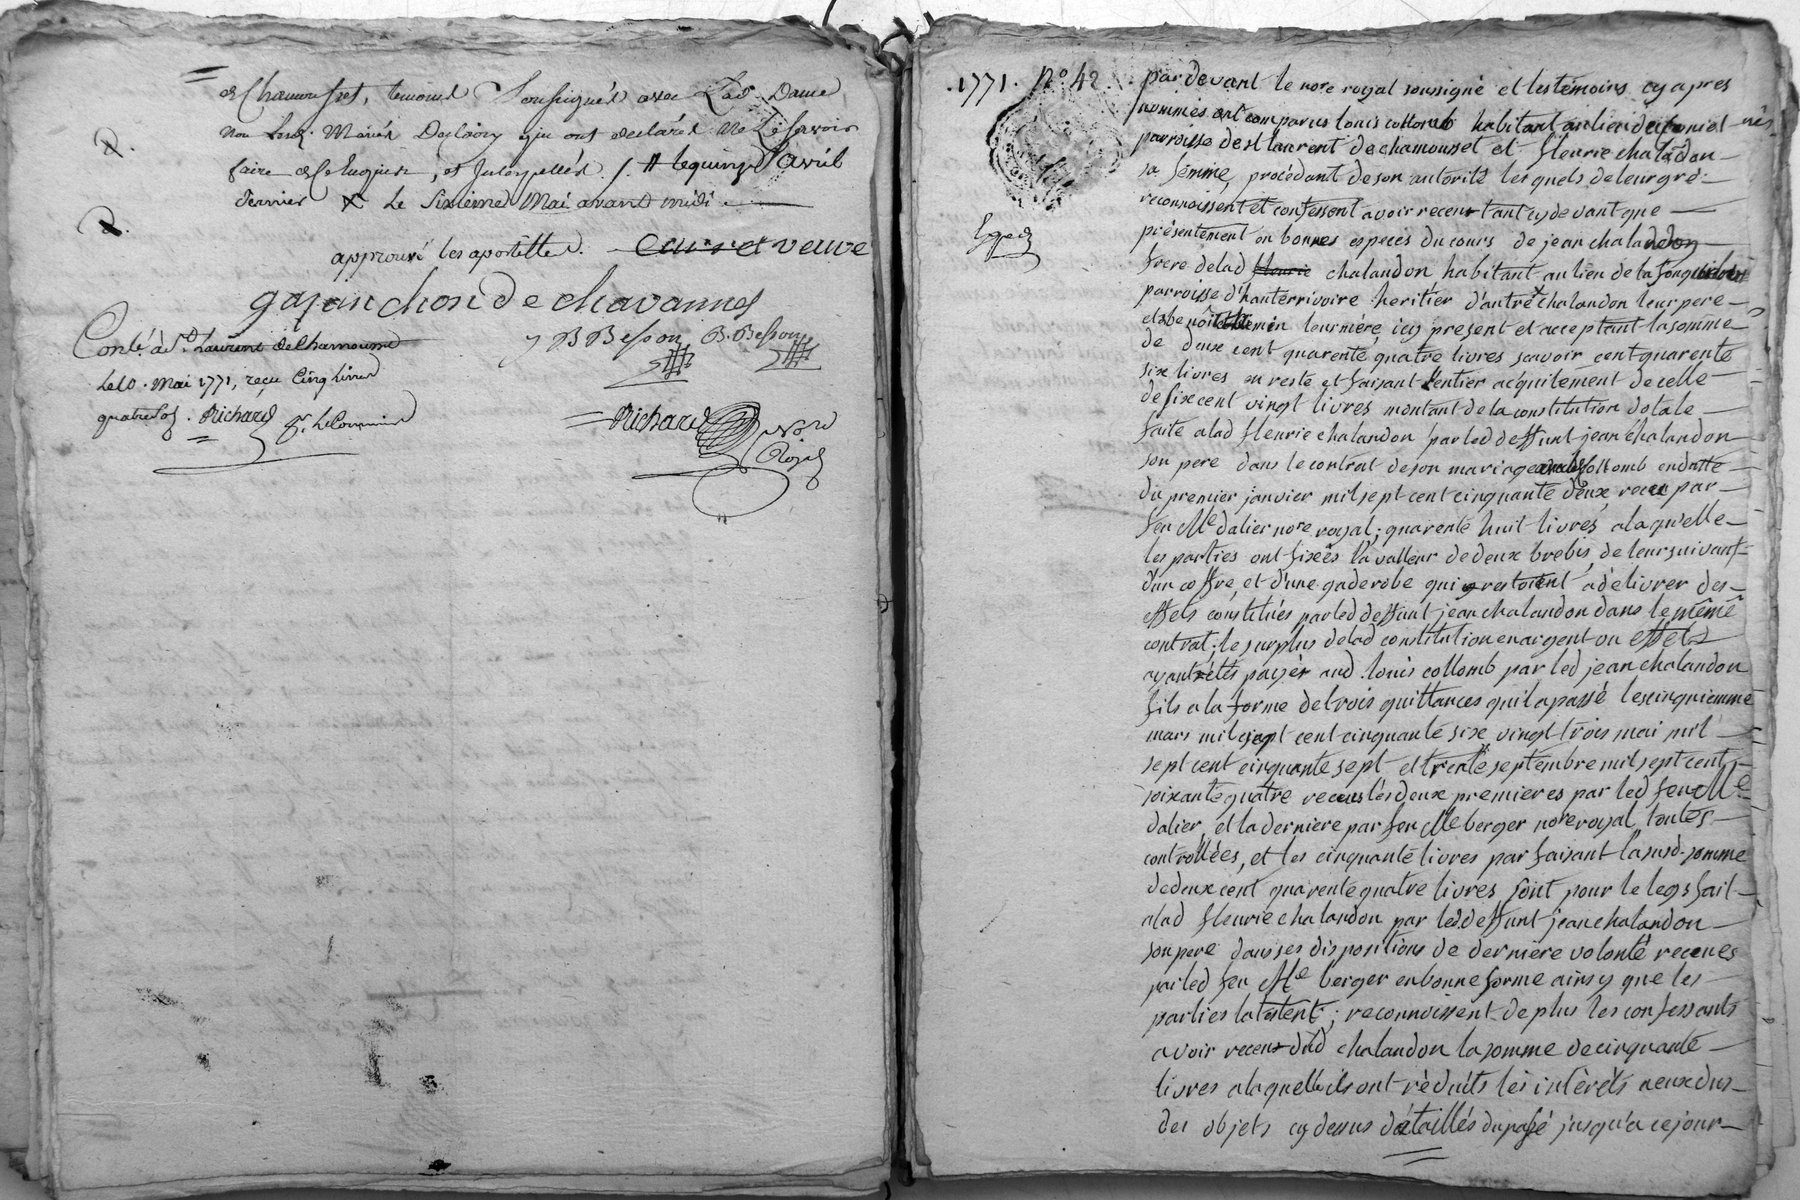 de Chamousset, temoins Soussignés avec Lad. Dame
non Lesd. Mariés Desclairy qui ont declarés ne Le scavoir
faire de Ce Enquis, et Interpellés ./. # le quinze avril
dernier X Le Sixieme Mai avant midi
approuvé les apostilles. Cauret veuve
gajanchon de chavannes
J B Besson B. Besson
Conlé. à St. Laurent de Chamousset
Le 10. Mai 1771, reçu Cinq Livres
quatre sols. Richard
Richard Nore
Royal
1771. No. 42
Expedié
par devant le nore royal soussigné et les témoins cy apres
nommés ont comparus louis collomb habitant au lieu de
parroisse de st laurent de chamousset et fleurie chalandon
sa femme, procédant de son autorité lesquels de leur gré
reconnoissent et confessent avoir receu tant cy devant que
présentement en bonnes especes du cours de jean chalandon
frere de lad fleurie chalandon habitant au lieu de la
parroisse d'hauterrivoire heritier d'autre chalandon leur pere
et de benoite leur mère, icy present et acceptant la somme
de deux cent quarente quatre livres scavoir cent quarente
six livres en reste et faisant l'entier acquitement de celle
de sixcent vingt livres montant de la constitution dotale
faite a lad fleurie chalandon par led deffunt jean chalandon
son pere dans le contrat de son mariage collomb en datte
du premier janvier mil sept cent cinquante deux, receu par
feu Me dalier nore royal; quarente huit livres, a laquelle
les parties ont fixées la valleur de deux brebis, de leur suivant
d'un coffre, et d'une gaderobe qui restoient a délivrer des
effets constitués par led deffunt jean chalandon dans le même
contrat; le surplus de lad constitution en argent ou effets
ayant étés payés aud. louis collomb par led jean chalandon
fils a la forme de trois quittances qu'il a passé les cinquiemme
mars mil sept cent cinquante six vingt trois mai mil
sept cent cinquante sept et trente septembre mil sept cent
soixante quatre receus les deux premieres par led feu Me
dalier, et la derniere par feu Me berger nore royal, toutes
controllées, et les cinquante livres parfaisant la susd. somme
de deux cent quarente quatre livres sont pour le legs fait
a lad fleurie chalandon par led deffunt jean chalandon
son pere dans ses dispositions de derniere volonté receues
par led feu Me berger en bonne forme ainsy que les
parties l'attestent; reconnoissent de plus les confessants
avoir receus dud chalandon la somme de cinquante
livres a laquelle ils ont réduits les intérêts a eux dus
des objets cy dessus détaillés du passé jusqu'a ce jour